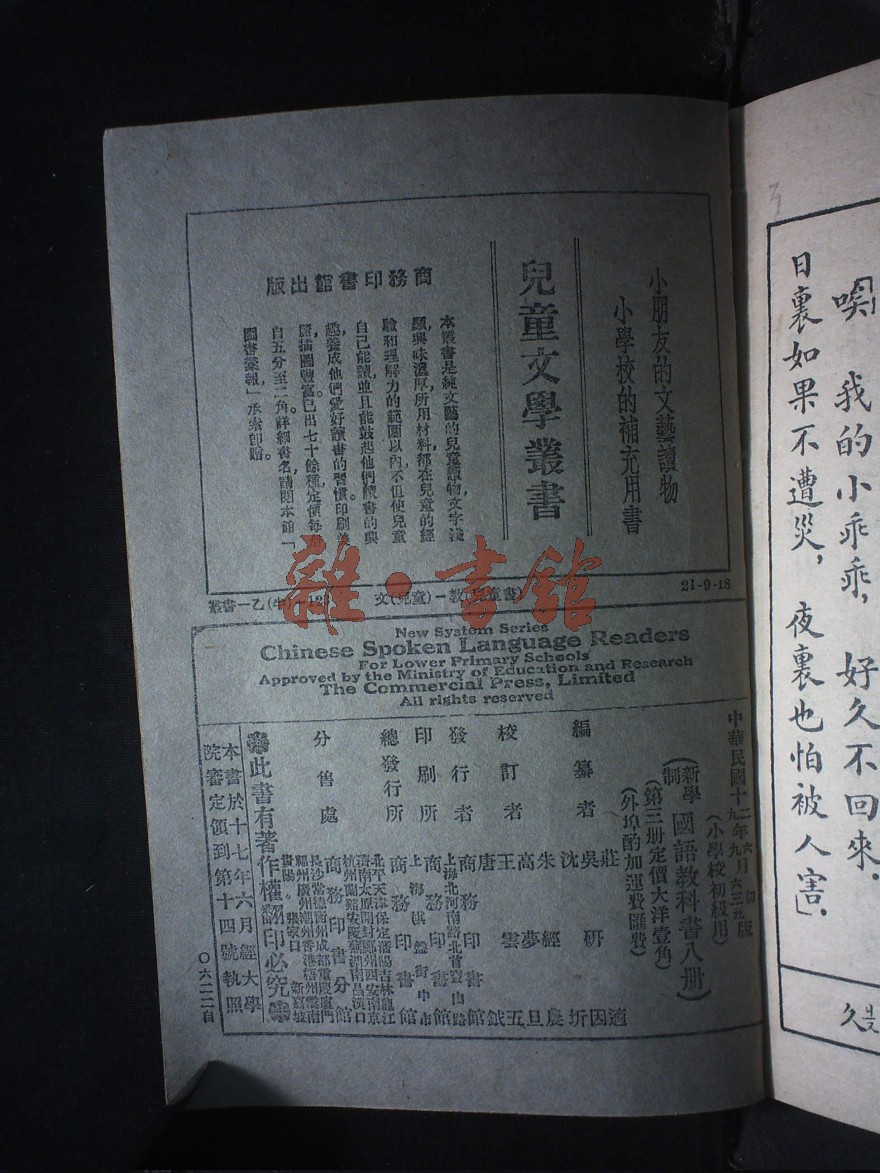 小朋友的文藝讀物
小學校的補充用書
兒童文學叢書
商務印書館出版
本叢書是純文藝的兒童讀物，文字淺
顯，興味濃厚，所用材料都在兒童的經
驗和理解力的範圍以內，不但使兒童
自己能讀，並且能鼓起他們讀書的興
趣，養成他們愛好讀書的習慣。印刷美
麗，插圖豐富。已出七十餘種，定價每册
自五分至二角。詳細書名，請閱本館「
圖書彙報」，承索即贈。
叢書一乙(牛)
文(兒童)一教(兒童書)
21-9-18
雜·書館
New System Series
Chinese Spoken Language Readers
For Lower Primary Schools
Approved by the Ministry of Education and Research
The Commercial Press, Limited
All rights reserved
(小學校初級用)
新學制 國語教科書八册)
(第三册定價大洋壹角)
(外埠酌加運費匯費)
編纂者 莊適 吳研因 沈圻
校訂者 朱經農 高夢旦 王雲五 唐鉞
發行者 上海北河南路北首寶山路 商務印書館
印刷所 商務印書館
總發行所 上海棋盤街中市 商務印書館
分售處 商務印書分館
北平天津保定瀋陽吉林龍江
濟南太原開封鄭州西安南京
杭州蘭谿安慶蕪湖南昌漢口
長沙常德衡州成都重慶廈門
福州廣州潮州香港梧州雲南
貴陽 張家口 新嘉坡
此書有著作權翻印必究
本書於十七年六月經大學
院審定領到第十四號執照
〇六二二自
「唉 我的小乖乖，好久不回來，
日裏如果不遭災，夜裏也怕被人害」。
久